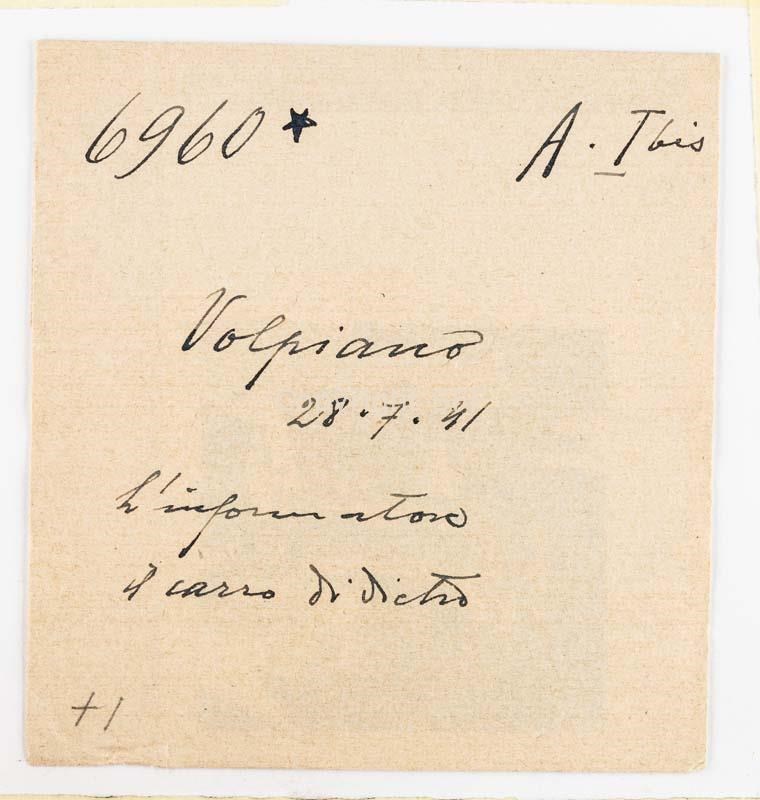 6960 ★ A. I bis
Volpiano
28.7.41
L'informatore
il carro di dietro
+1